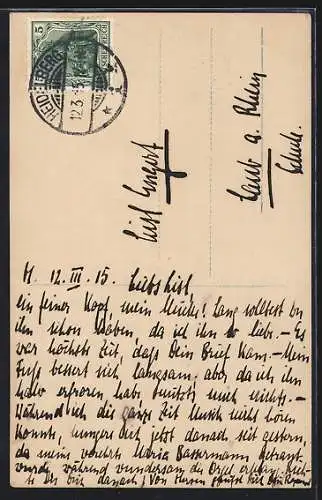 5
DEUTSCHES REICH
HEIDELBERG
12.3.15
Lisl Engert
Caub a. Rhein
Schule.
H. 12. III. 15. Liebs Lisl
Ein feiner Kopf, mein Mucki! Lang solltest du
ihn schon haben, da ich ihn so liebe. – Es
war höchste Zeit, dass Dein Brief kam. – Mein
Fuss bessert sich langsam; aber da ich ihn
halb erfroren habe nichts. –
Während ich die ganze Zeit Musik nicht hören
konnte, hungere ich jetzt danach seit gestern,
da mein verehrte Maria Bassermann getraut
wurde, während wundersam die Orgel erklang.
bis danach! Von Herzen grüsst